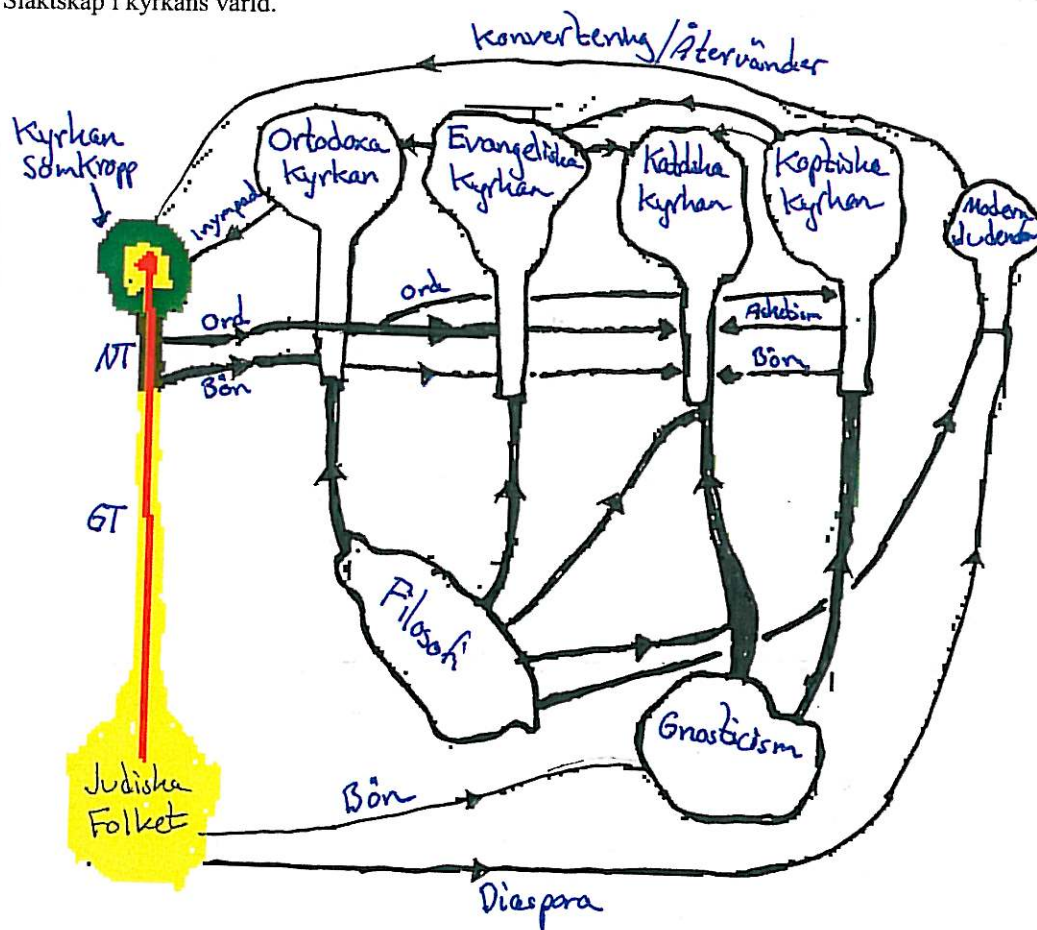 Släktskap i kyrkans värld.
Konvertering/Återvänder
Kyrkan
som kropp
Ortodoxa
Kyrkan
Evangeliska
Kyrkan
Katolska
Kyrkan
Koptiska
Kyrkan
Modern
Judendom
Inympad
Ord
Ord
Askebism
NT
Bön
Bön
GT
Filosofi
Gnosticism
Judiska
Folket
Bön
Diaspora